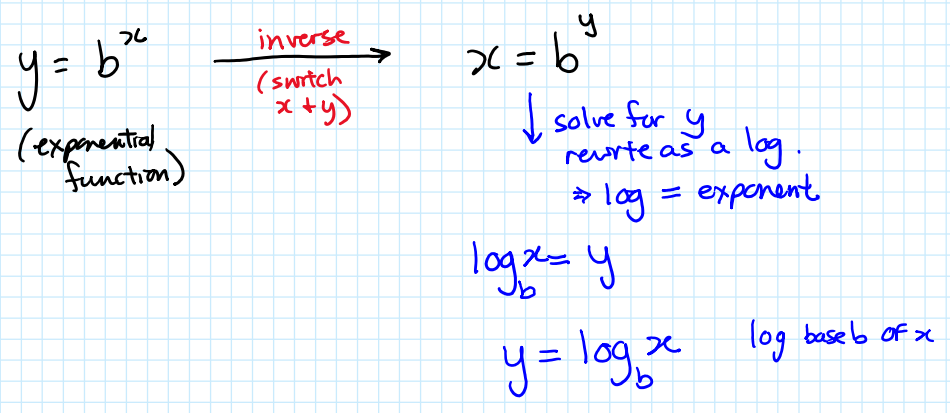 y = b^x
(exponential function)
inverse
(switch x + y)
x = b^y
solve for y
rewrite as a log.
⇒ log = exponent
log_b x = y
y = log_b x
log base b of x